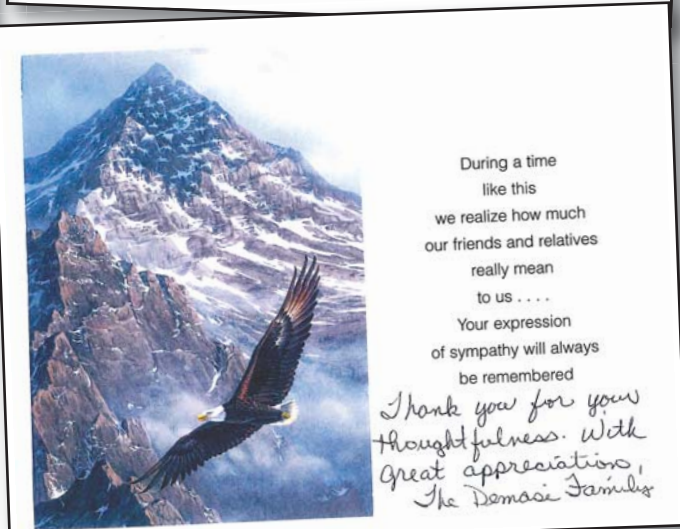 During a time
like this
we realize how much
our friends and relatives
really mean
to us . . . .
Your expression
of sympathy will always
be remembered
Thank you for your
thoughtfulness. With
great appreciation,
The Demasi Family